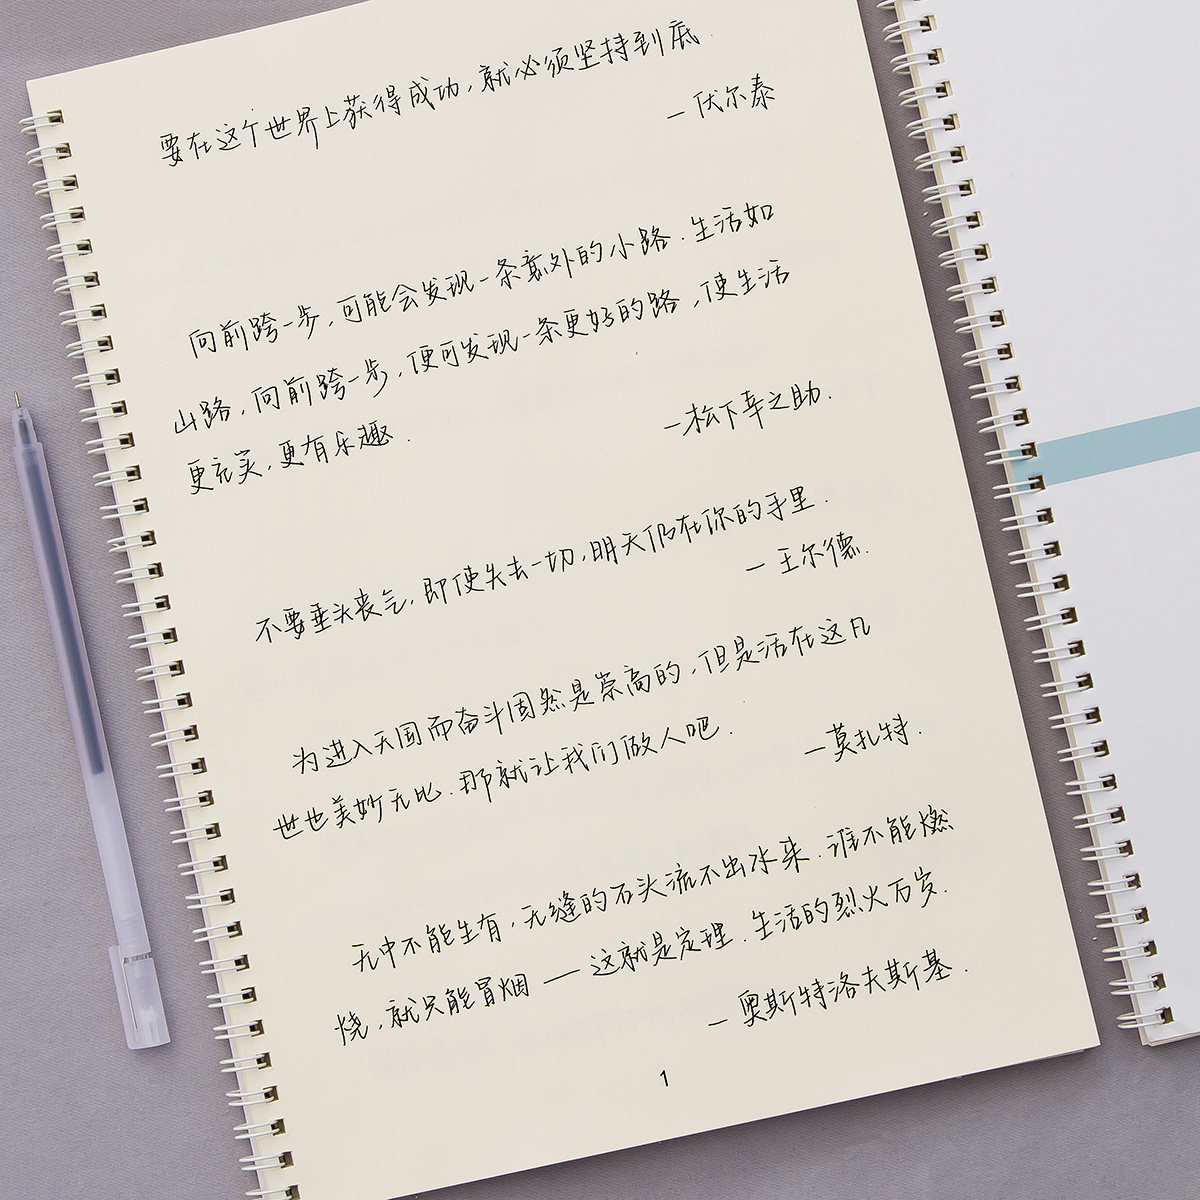 要在这个世界上获得成功，就必须坚持到底.
— 伏尔泰
向前跨一步，可能会发现一条意外的小路．生活如
山路，向前跨一步，便可发现一条更好的路，使生活
更充实，更有乐趣．
—松下幸之助．
不要垂头丧气，即使失去一切，明天仍在你的手里．
— 王尔德．
为进入天国而奋斗固然是崇高的，但是活在这凡
世也美妙无比．那就让我们做人吧．
—莫扎特．
无中不能生有，无缝的石头流不出水来．谁不能燃
烧，就只能冒烟 —— 这就是定理．生活的烈火万岁．
— 奥斯特洛夫斯基．
1